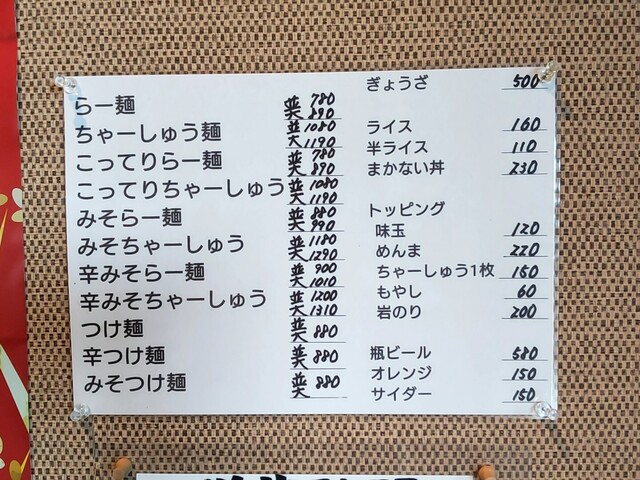 らー麺 並 780
大 890
ちゃーしゅう麺 並 1080
大 1190
こってりらー麺 並 780
大 890
こってりちゃーしゅう 並 1080
大 1190
みそらー麺 並 880
大 990
みそちゃーしゅう 並 1180
大 1290
辛みそらー麺 並 900
大 1010
辛みそちゃーしゅう 並 1200
大 1310
つけ麺 並 880
大
辛つけ麺 並 880
大
みそつけ麺 並 880
大
ぎょうざ 500
ライス 160
半ライス 110
まかない丼 230
トッピング
味玉 120
めんま 220
ちゃーしゅう1枚 150
もやし 60
岩のり 200
瓶ビール 580
オレンジ 150
サイダー 150